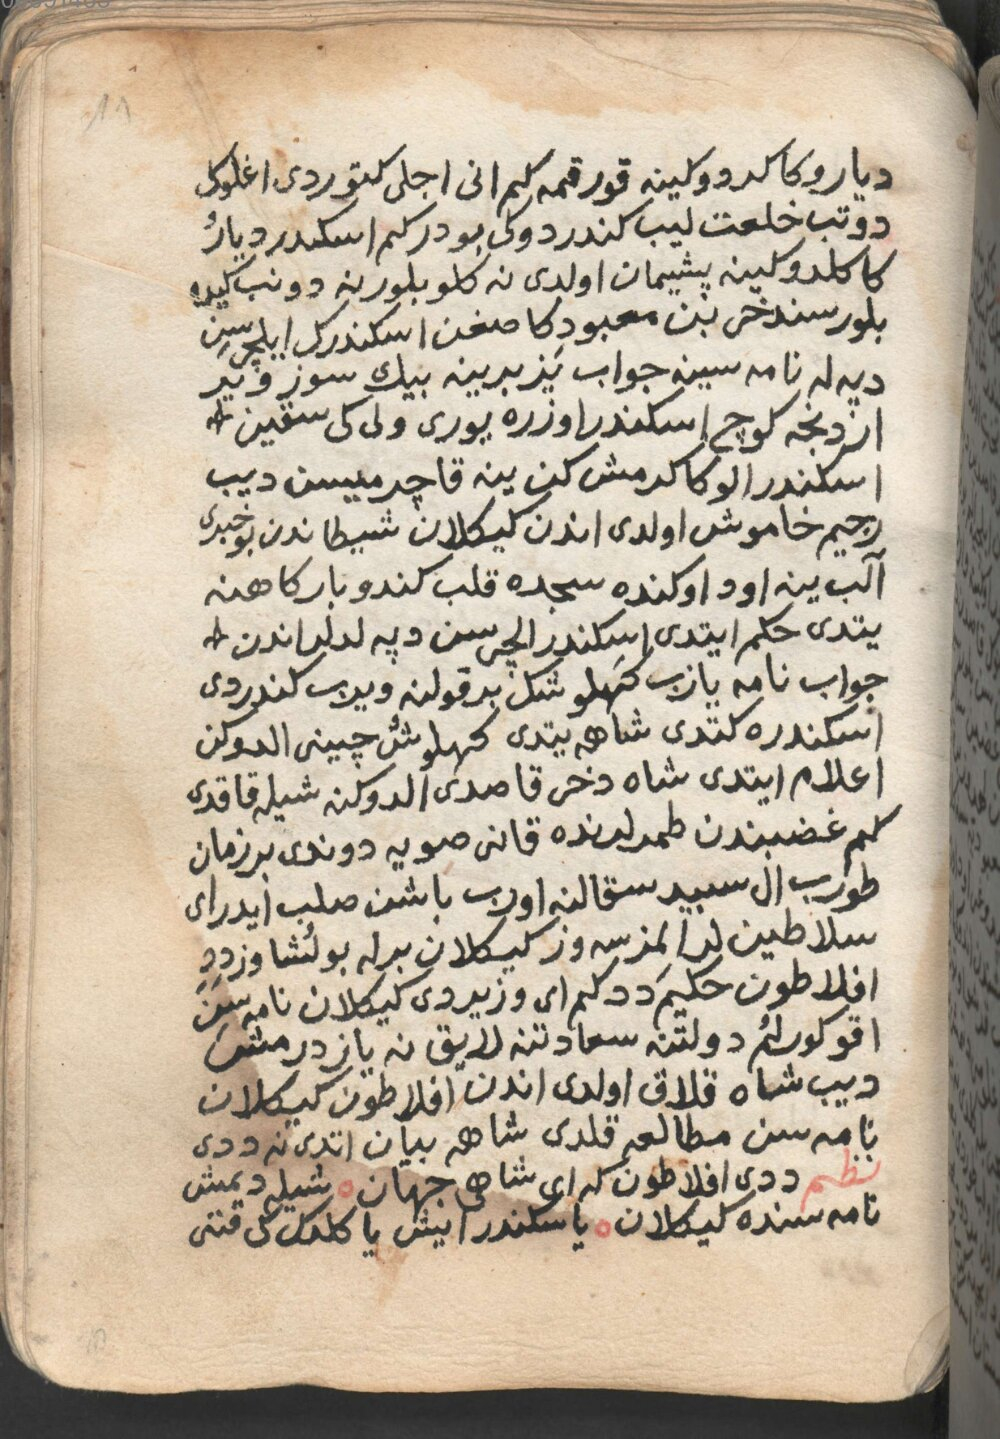 دیارو کا کلدوکینه قورقمه کیم انی اجلی کتوردی اغلوکل
دوتب خلعت لیب کندردوکی بودرکم اسکندر دیارُ
کا کلدوکینه پشیمان اولدی نه کلو بلور نه دونب کیده
بلور سندخی بُن معبودکا صغن اسکندرکل ایلچی سِن
دپه له نامه سینه جواب یَز بربینه بیك سوز ویر
اردنجه کوچ اسکندر اوزره یوری ولی کی سقین
اسکندر الوکا کرمش کن ینه قاچرمیسن دیب
رجیم خاموش اولدی اندن کیکلان شیطاندن بو خبری
آلب ینه اود اوکنده سجده قلب کندو بارکاهنه
یتدی حکم ایتدی اسکندر الچیسن دپه لدلر اندن
جواب نامه یازب کَهلوشک بر قولنه ویرب کندردی
اسکندره کتدی شاهه یتدی کهلوشُ چینی الدوکن
اعلام ایتدی شاه دخی قاصدی الدوکنه شیله قاقدی
کیم غضبندن طمرلرنده قانی صویه دوندی بر زمان
طورب ال سبید سقالنه اورب باشن صلب ایدر ای
سلاطین لر المزسه وز کیکلان برله بولُشاوز ددِ
افلاطون حکیمَ ددکم ای وزیر دی کیکلان نامه سِنَ
اقو کورلُم دولتنه سعادتنه لایق نه یازدرمش
دیب شاه قلاق اولدی اندن افلاطون کیکلان
نامه سن مطالعه قلدی شاهه بیان اتدی نه ددی
نظم ددی افلاطون که ای شاهی جهان ٥ شیله دیمش
نامه سنده کیکلان ٥ یا سکندر ایش یا کلدك کی قتی